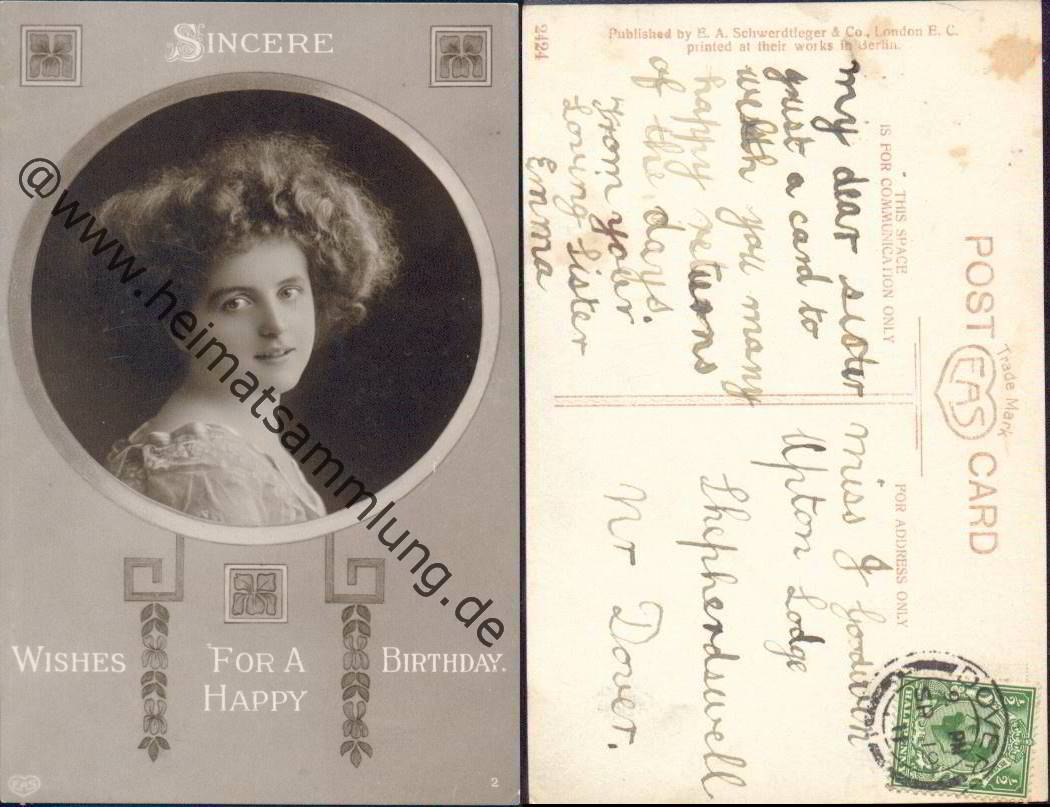 SINCERE
WISHES
FOR A
HAPPY
BIRTHDAY.
EAS
2
@www.heimatsammlung.de
2424
Published by E. A. Schwerdtfeger & Co., London E. C.
printed at their works in Berlin.
POST CARD
Trade Mark
EAS
THIS SPACE
IS FOR COMMUNICATION ONLY
FOR ADDRESS ONLY
my dear sister
just a card to
wish you many
happy returns
of the days.
From your
Loving Sister
Emma
Miss J
Upton Lodge
Shepherdswell
Nr Dover.
DOVER
PM
SP
11
HALFPENNY